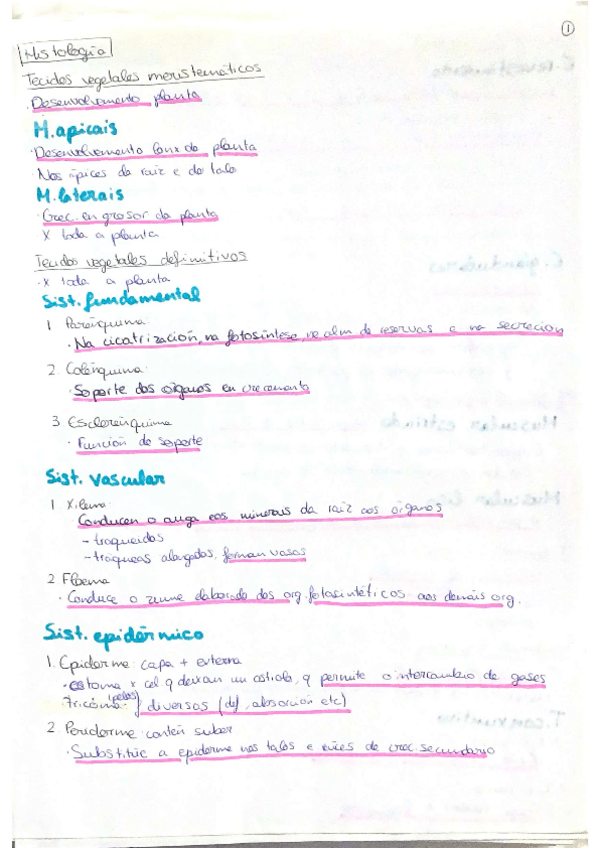 1
Histología
Tecidos vegetales meristemáticos
· Desenvolvemento planta
M. apicais
· Desenvolvemento lonx da planta
· Nos ápices da raiz e do talo
M. laterais
· Crec. en grosor da planta
x toda a planta
Tecidos vegetales definitivos
· x toda a planta
Sist. fundamental
1 Parénquima:
· Na cicatrización, na fotosíntese, no alm de reservas e na secreción
2. Colénquima:
· Soporte dos órganos en crecemento
3 Esclerénquima
· Función de soporte
Sist. vascular
1 Xilema:
Conducen o auga eos minerais da raiz aos órganos
- traqueidos
- tráqueas alongadas, forman vasos
2 Floema
· Conduce o zume elaborado dos org. fotosintéticos aos demais org.
Sist. epidérmico
1. Epiderme: capa + externa
· estoma x cel q deixan un ostiolo, q permite o intercambio de gases
Tricoma: (pelos) } diversos (def, absorción etc)
2. Periderme: contén suber
· Substitúe a epiderme nos talos e raices de crec. secundario